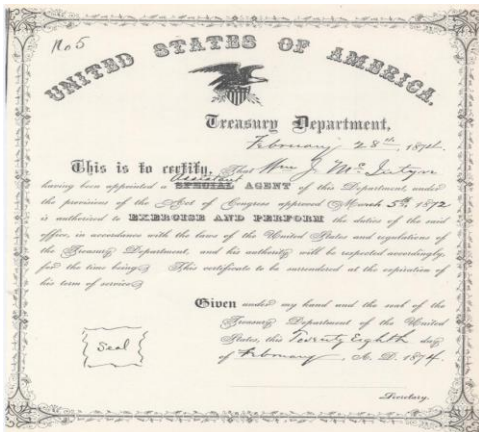 No 5
UNITED STATES OF AMERICA.
Treasury Department,
February 28th, 1874.
This is to certify, That Wm J. McIntyre
Assistant
having been appointed a SPECIAL AGENT of this Department, under
the provisions of the Act of Congress approved March 5th 1872
is authorized to EXERCISE AND PERFORM the duties of the said
office, in accordance with the laws of the United States and regulations of
the Treasury Department, and his authority will be respected accordingly,
for the time being. This certificate to be surrendered at the expiration of
his term of service.
Given under my hand and the seal of the
Treasury Department of the United
States, this Twenty Eighth day
of February, A. D. 1874.
Seal
Secretary.